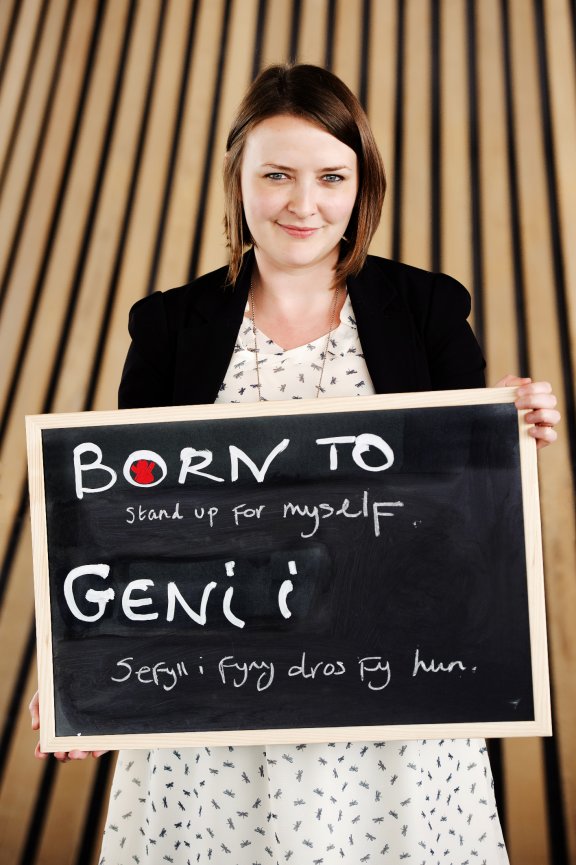 BORN TO
Stand up for myself.
GENi i
Sefyll i fyny dros fy hun.